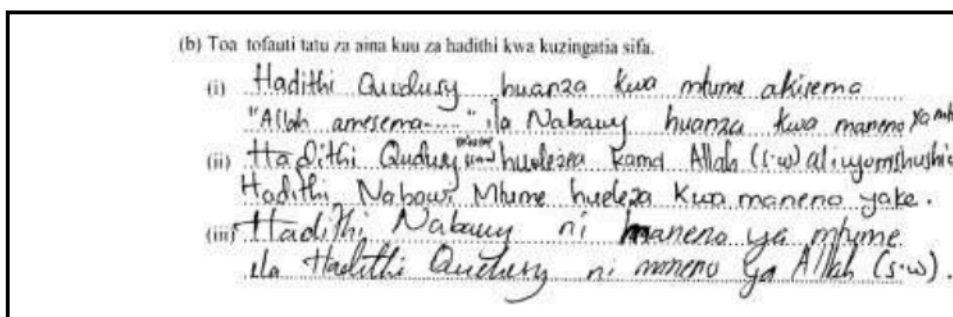 (b) Toa tofauti tatu za aina kuu za hadithi kwa kuzingatia sifa.
(i) Hadithi Qudusy huanza kwa mtume akisema
"Allah amesema....." ila Nabawy huanza kwa maneno ya
(ii) Hadithi Qudusy huelezea kama Allah (s.w)
Hadithi Nabawi Mtume hueleza kwa maneno yake.
(iii) Hadithi Nabawy ni maneno ya mtume
ila Hadithi Qudusy ni maneno ya Allah (s.w).